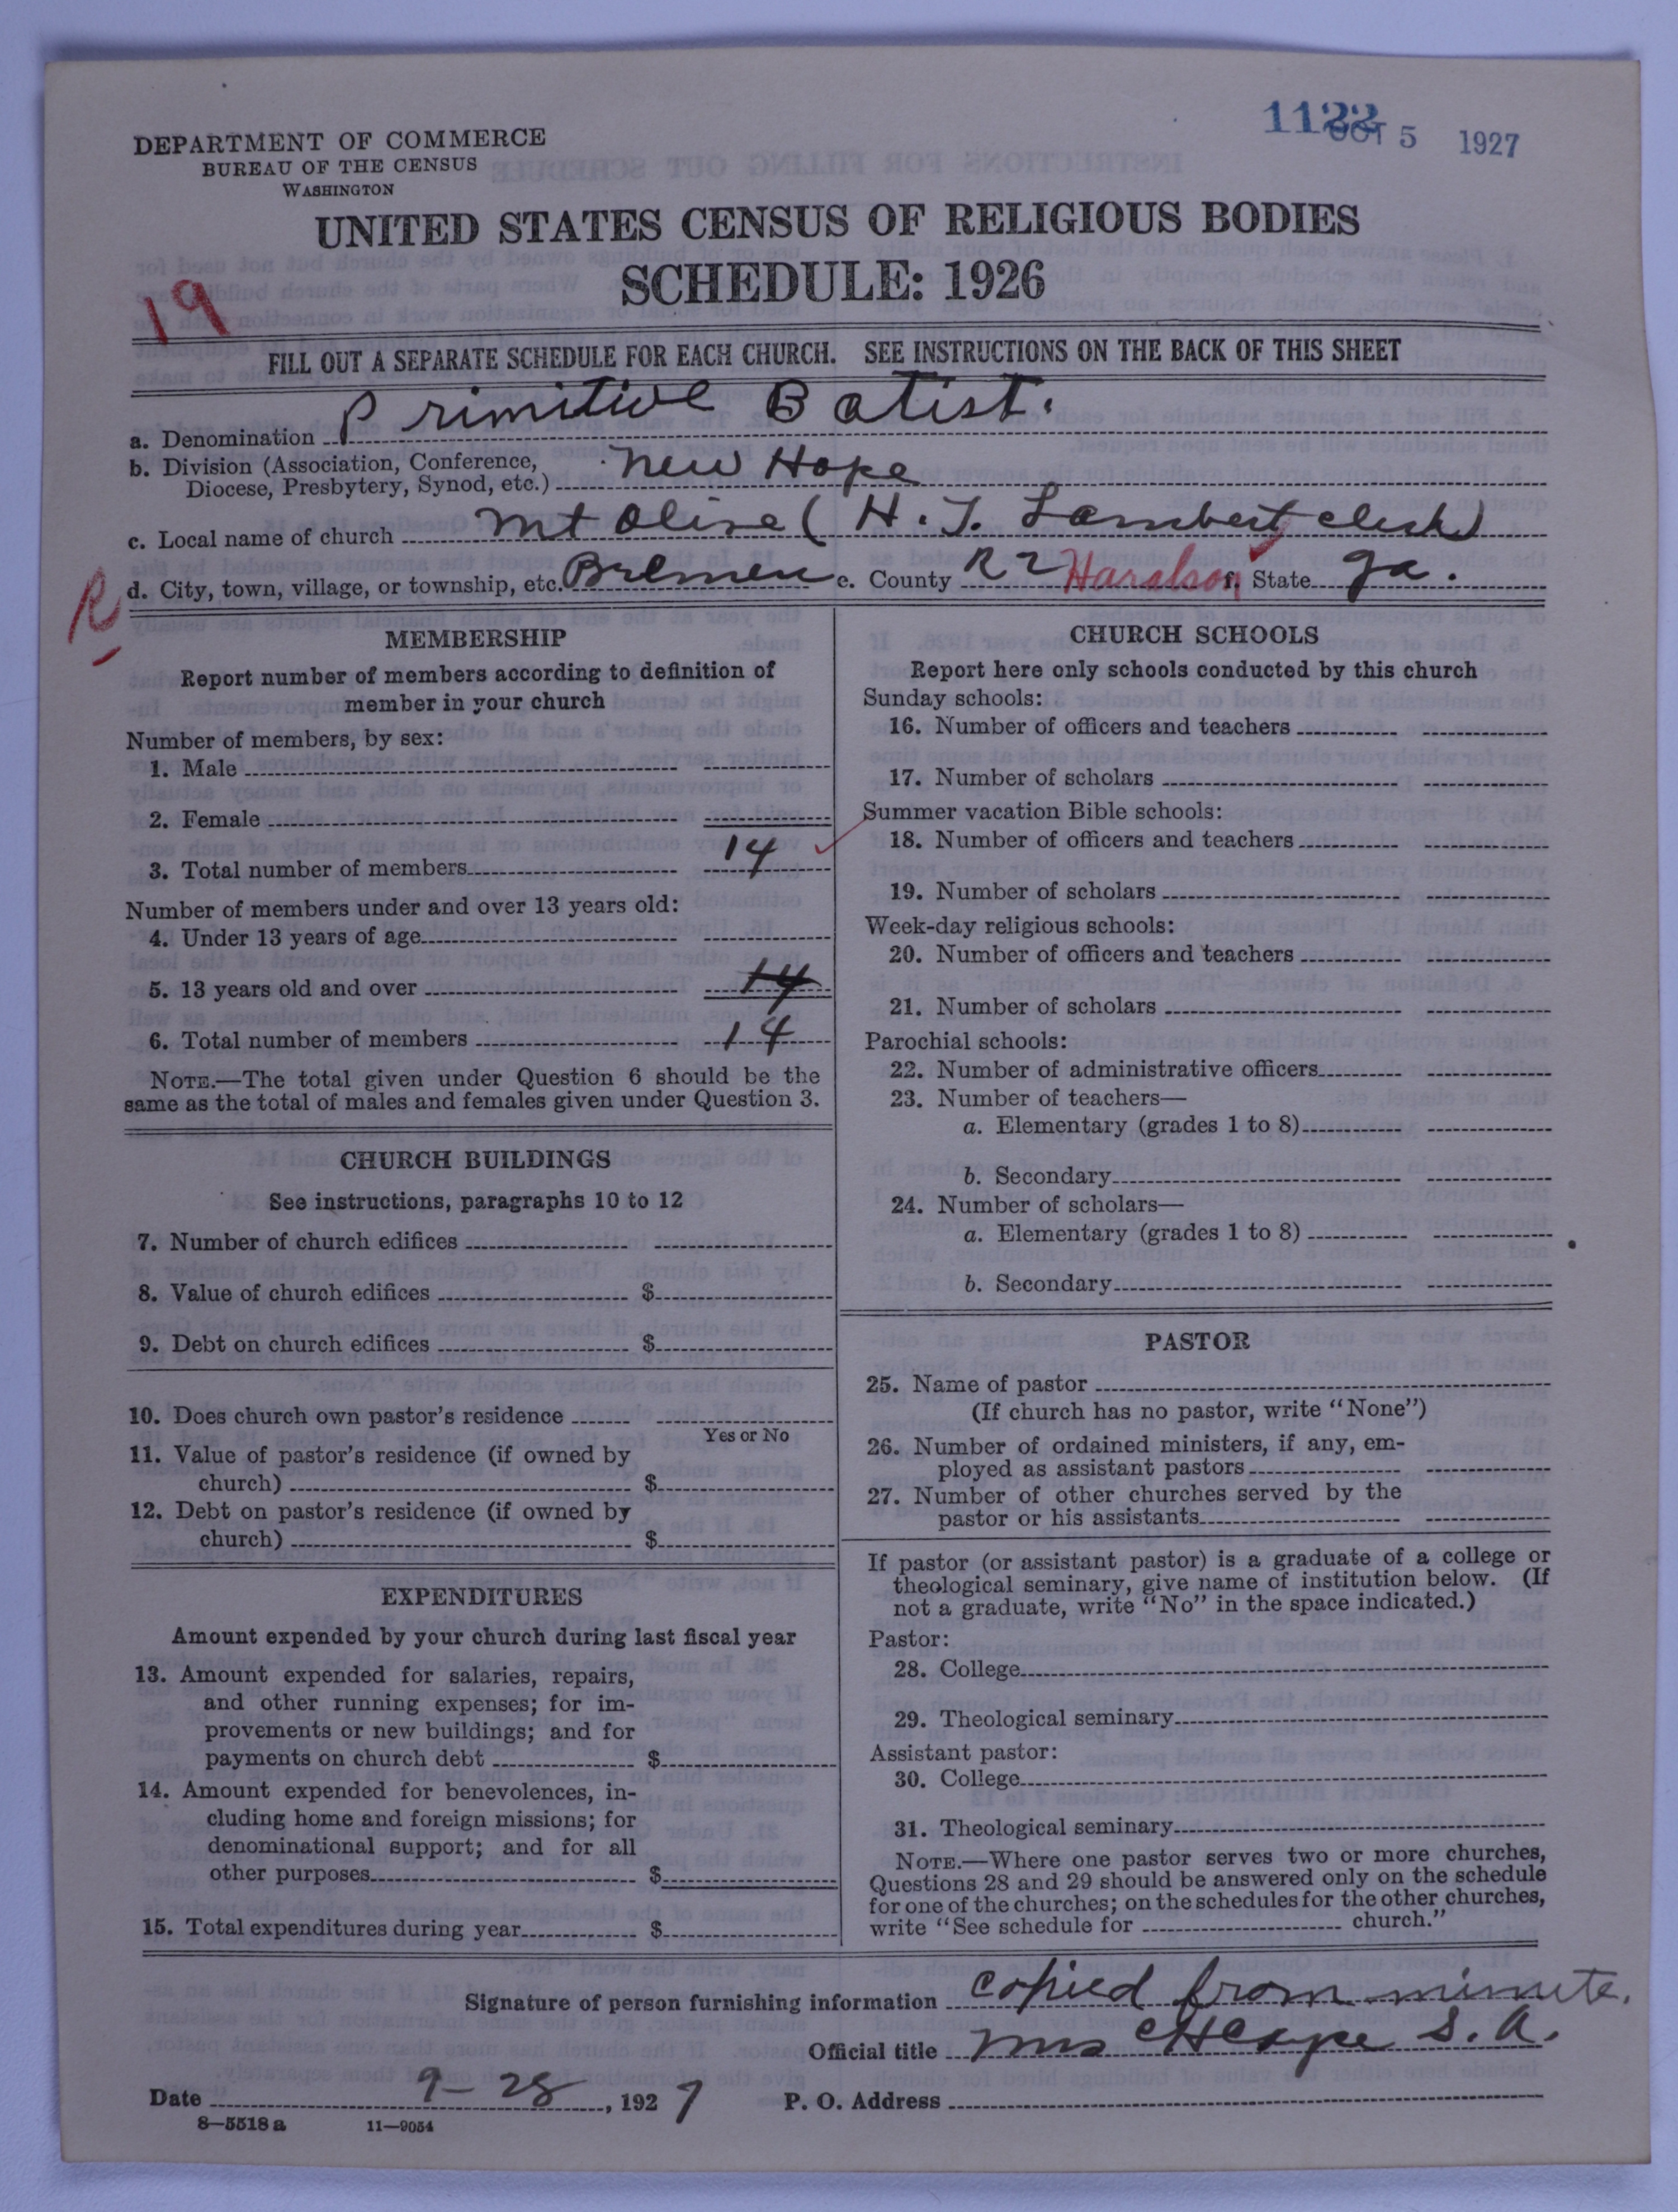 1122 OCT 5 1927
DEPARTMENT OF COMMERCE
BUREAU OF THE CENSUS
WASHINGTON
UNITED STATES CENSUS OF RELIGIOUS BODIES
SCHEDULE: 1926
19
FILL OUT A SEPARATE SCHEDULE FOR EACH CHURCH. SEE INSTRUCTIONS ON THE BACK OF THIS SHEET
a. Denomination Primitive Batist.
b. Division (Association, Conference,
Diocese, Presbytery, Synod, etc.) New Hope
c. Local name of church Mt Olive (H. T. Lambert clerk)
d. City, town, village, or township, etc. Bremen e. County R 2 Haralson f. State Ga.
R
MEMBERSHIP
Report number of members according to definition of
member in your church
Number of members, by sex:
1. Male
2. Female
3. Total number of members 14
Number of members under and over 13 years old:
4. Under 13 years of age
5. 13 years old and over 14
6. Total number of members 14
NOTE.—The total given under Question 6 should be the
same as the total of males and females given under Question 3.
CHURCH BUILDINGS
See instructions, paragraphs 10 to 12
7. Number of church edifices
8. Value of church edifices $
9. Debt on church edifices $
10. Does church own pastor's residence
Yes or No
11. Value of pastor's residence (if owned by
church) $
12. Debt on pastor's residence (if owned by
church) $
EXPENDITURES
Amount expended by your church during last fiscal year
13. Amount expended for salaries, repairs,
and other running expenses; for im-
provements or new buildings; and for
payments on church debt $
14. Amount expended for benevolences, in-
cluding home and foreign missions; for
denominational support; and for all
other purposes $
15. Total expenditures during year $
CHURCH SCHOOLS
Report here only schools conducted by this church
Sunday schools:
16. Number of officers and teachers
17. Number of scholars
Summer vacation Bible schools:
18. Number of officers and teachers
19. Number of scholars
Week-day religious schools:
20. Number of officers and teachers
21. Number of scholars
Parochial schools:
22. Number of administrative officers
23. Number of teachers—
a. Elementary (grades 1 to 8)
b. Secondary
24. Number of scholars—
a. Elementary (grades 1 to 8)
b. Secondary
PASTOR
25. Name of pastor
(If church has no pastor, write "None")
26. Number of ordained ministers, if any, em-
ployed as assistant pastors
27. Number of other churches served by the
pastor or his assistants
If pastor (or assistant pastor) is a graduate of a college or
theological seminary, give name of institution below. (If
not a graduate, write "No" in the space indicated.)
Pastor:
28. College
29. Theological seminary
Assistant pastor:
30. College
31. Theological seminary
NOTE.—Where one pastor serves two or more churches,
Questions 28 and 29 should be answered only on the schedule
for one of the churches; on the schedules for the other churches,
write "See schedule for church."
Signature of person furnishing information copied from minute.
Official title Mrs S. A.
Date 9-28, 1927 P. O. Address
8—5518 a 11—9054